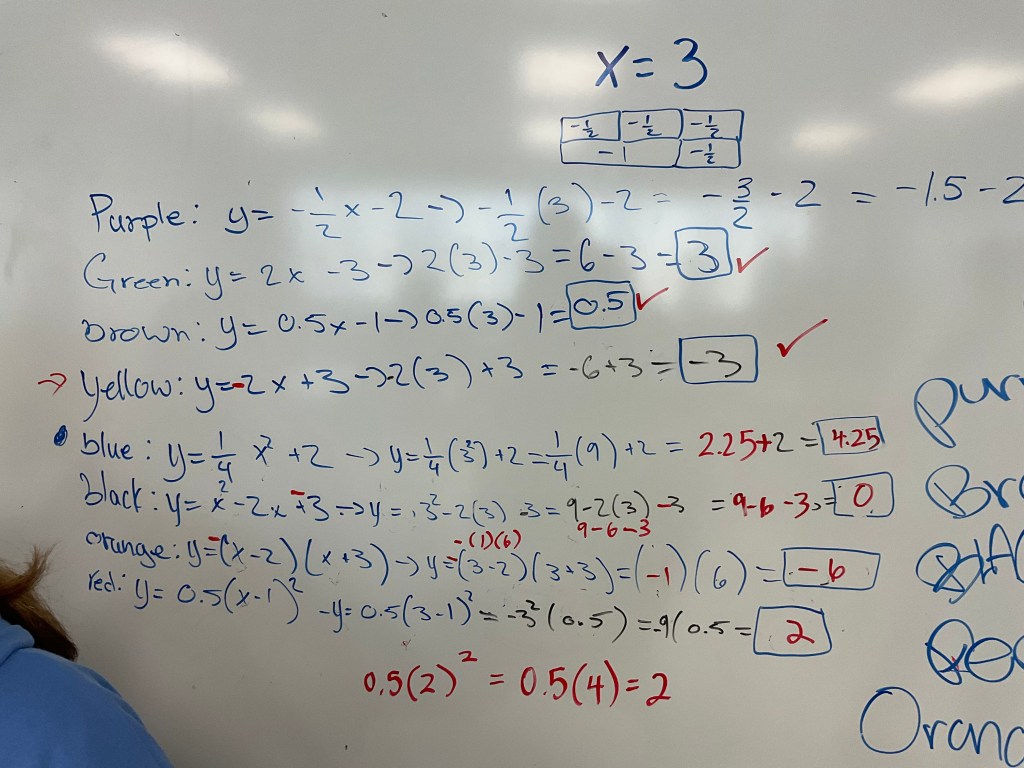 x = 3
-1/2 -1/2 -1/2
-1 -1/2
Purple: y = -1/2 x - 2 → -1/2 (3) - 2 = -3/2 - 2 = -1.5 - 2
Green: y = 2x - 3 → 2(3) - 3 = 6 - 3 = 3 ✓
Brown: y = 0.5x - 1 → 0.5(3) - 1 = 0.5 ✓
→ Yellow: y = -2x + 3 → -2(3) + 3 = -6 + 3 = -3 ✓
blue: y = 1/4 x² + 2 → y = 1/4 (3²) + 2 = 1/4 (9) + 2 = 2.25 + 2 = 4.25
black: y = x² - 2x - 3 → y = 3² - 2(3) - 3 = 9 - 2(3) - 3 = 9 - 6 - 3 = 0
-(1)(6) 9 - 6 - 3
orange: y = -(x - 2)(x + 3) → y = -(3 - 2)(3 + 3) = (-1)(6) = -6
red: y = 0.5(x - 1)² - y = 0.5(3 - 1)² = -3²(0.5) = -9(0.5 = 2
0.5(2)² = 0.5(4) = 2
Pur
Bro
Oran